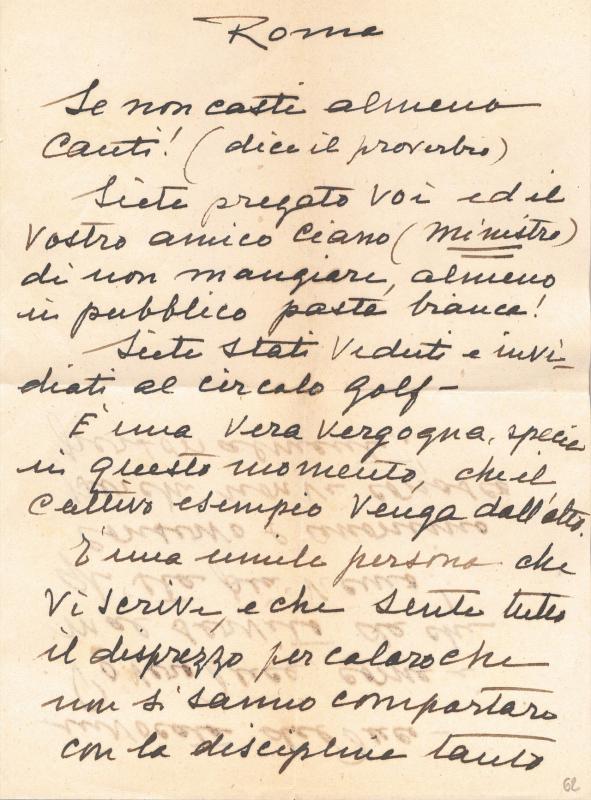 Roma
Se non casti almeno
Cauti! (dice il proverbio)
Siete pregato Voi ed il
Vostro amico Ciano (ministro)
di non mangiare, almeno
in pubblico pasta bianca!
Siete stati veduti e invi-
diati al circolo Golf-
E' una vera vergogna, specie
in questo momento, che il
cattivo esempio venga dall'alto.
E' una umile persona che
Vi scrive, e che sente tutto
il disprezzo per coloro che
non si sanno comportare
con la disciplina tanto
62